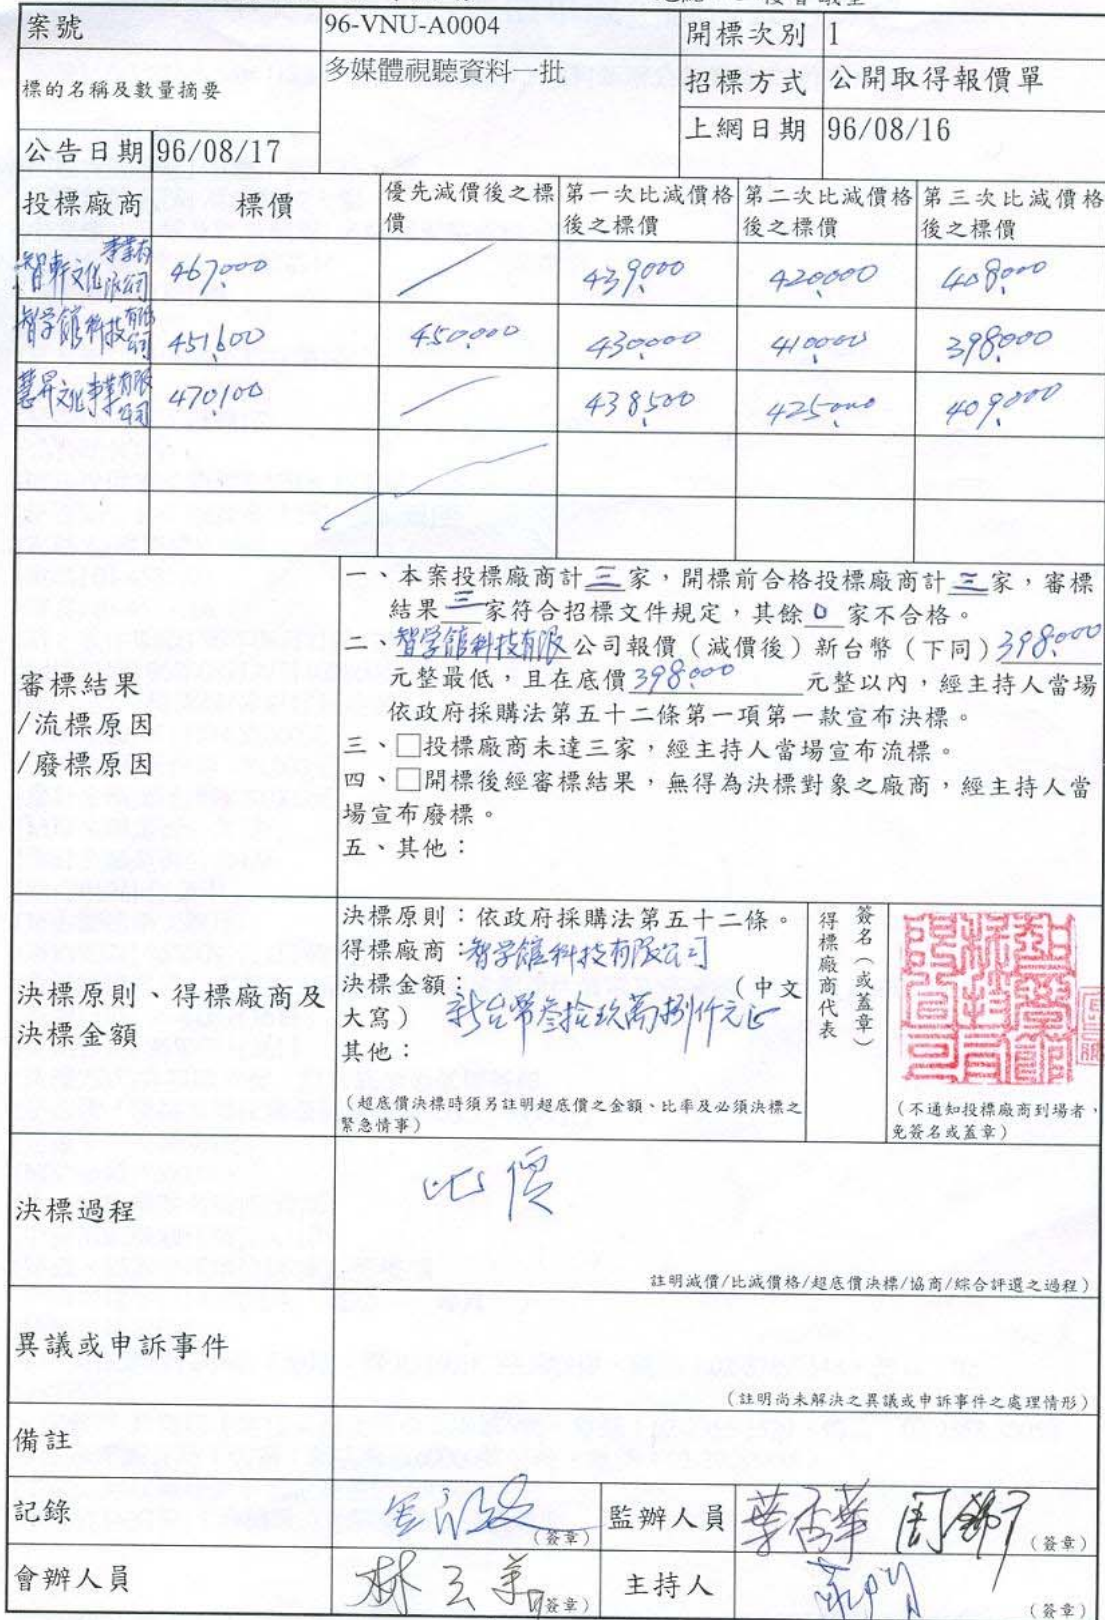 案號 96-VNU-A0004 開標次別 1
標的名稱及數量摘要 多媒體視聽資料一批 招標方式 公開取得報價單
公告日期 96/08/17 上網日期 96/08/16
投標廠商 標價 優先減價後之標價 第一次比減價格後之標價 第二次比減價格後之標價 第三次比減價格後之標價
智軒文化事業有限公司 467000 439,000 420,000 408,000
智学館科技有限公司 451600 450,000 430,000 410,000 398,000
慧昇文化事業有限公司 470100 438,500 425,000 409,000
審標結果
/流標原因
/廢標原因
一、本案投標廠商計三家,開標前合格投標廠商計三家,審標
結果三家符合招標文件規定,其餘0家不合格。
二、智学館科技有限公司報價(減價後)新台幣(下同)398,000
元整最低,且在底價398,000元整以內,經主持人當場
依政府採購法第五十二條第一項第一款宣布決標。
三、□投標廠商未達三家,經主持人當場宣布流標。
四、□開標後經審標結果,無得為決標對象之廠商,經主持人當
場宣布廢標。
五、其他:
決標原則、得標廠商及
決標金額
決標原則:依政府採購法第五十二條。
得標廠商:智学館科技有限公司
決標金額: (中文
大寫) 新台幣叁拾玖萬捌仟元正
其他:
(超底價決標時須另註明超底價之金額、比率及必須決標之
緊急情事)
得標廠商代表
簽名(或蓋章)
(不通知投標廠商到場者,
免簽名或蓋章)
決標過程
比價
註明減價/比減價格/超底價決標/協商/綜合評選之過程)
異議或申訴事件
(註明尚未解決之異議或申訴事件之處理情形)
備註
記錄 (簽章) 監辦人員 (簽章)
會辦人員 (簽章) 主持人 (簽章)